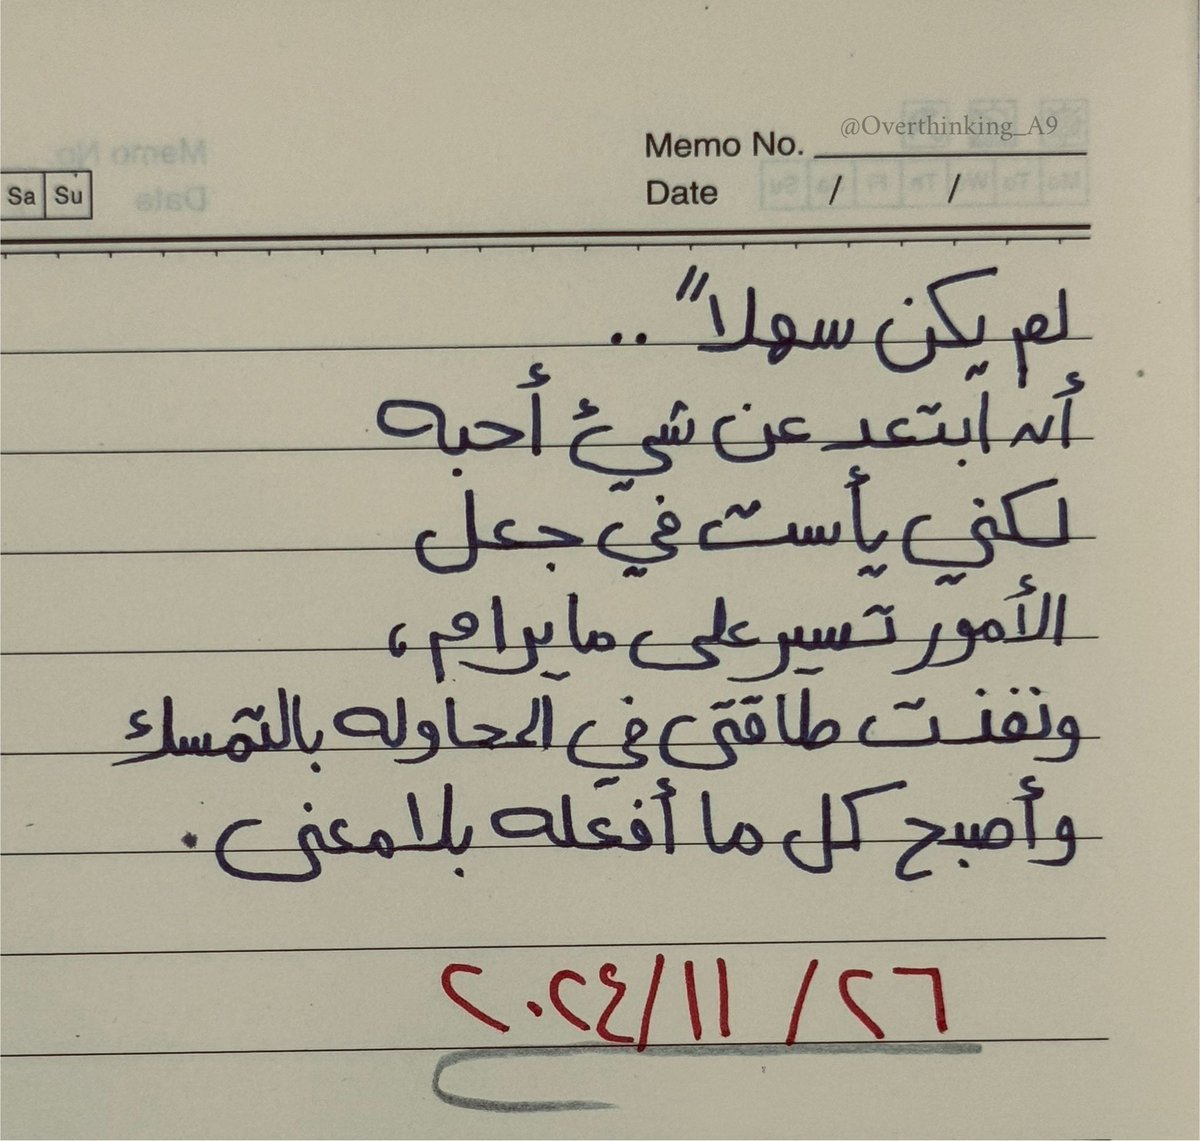 @Overthinking_A9
Memo No.
Date / /
Sa Su
لم يكن سهلاً ..
أن ابتعد عن شيئ أحبه
لكني يأست في جعل
الأمور تسير على ما يرام ،
ونفذت طاقتي في المحاوله بالتمسك
وأصبح كل ما أفعله بلا معنى .
٢٦ / ١١/٢٠٢٤